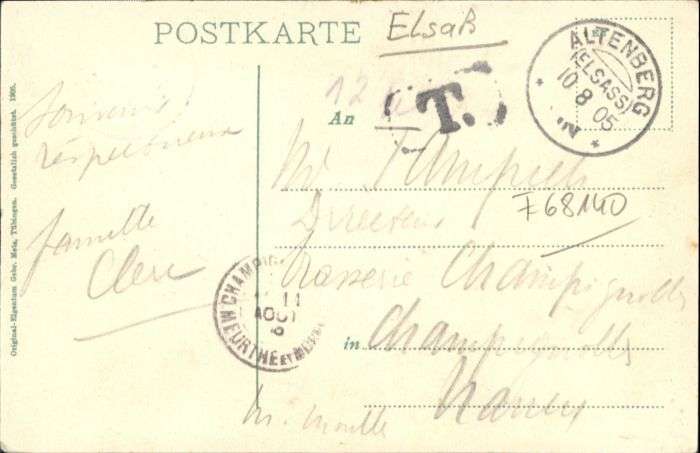 POSTKARTE
Elsaß
ALTENBERG
(ELSASS)
10 8 05
T.
12
An
Souvenirs
respectueux
famille
Clerc
Mr
Directeur
Brasserie Champigneulles
in Champigneulles
Nancy
Mr. Moselle
F68140
CHAMPIG
11
AOUT
MEURTHE ET MOSELLE
Original-Eigentum Gebr. Metz, Tübingen. Gesetzlich geschützt. 1905.